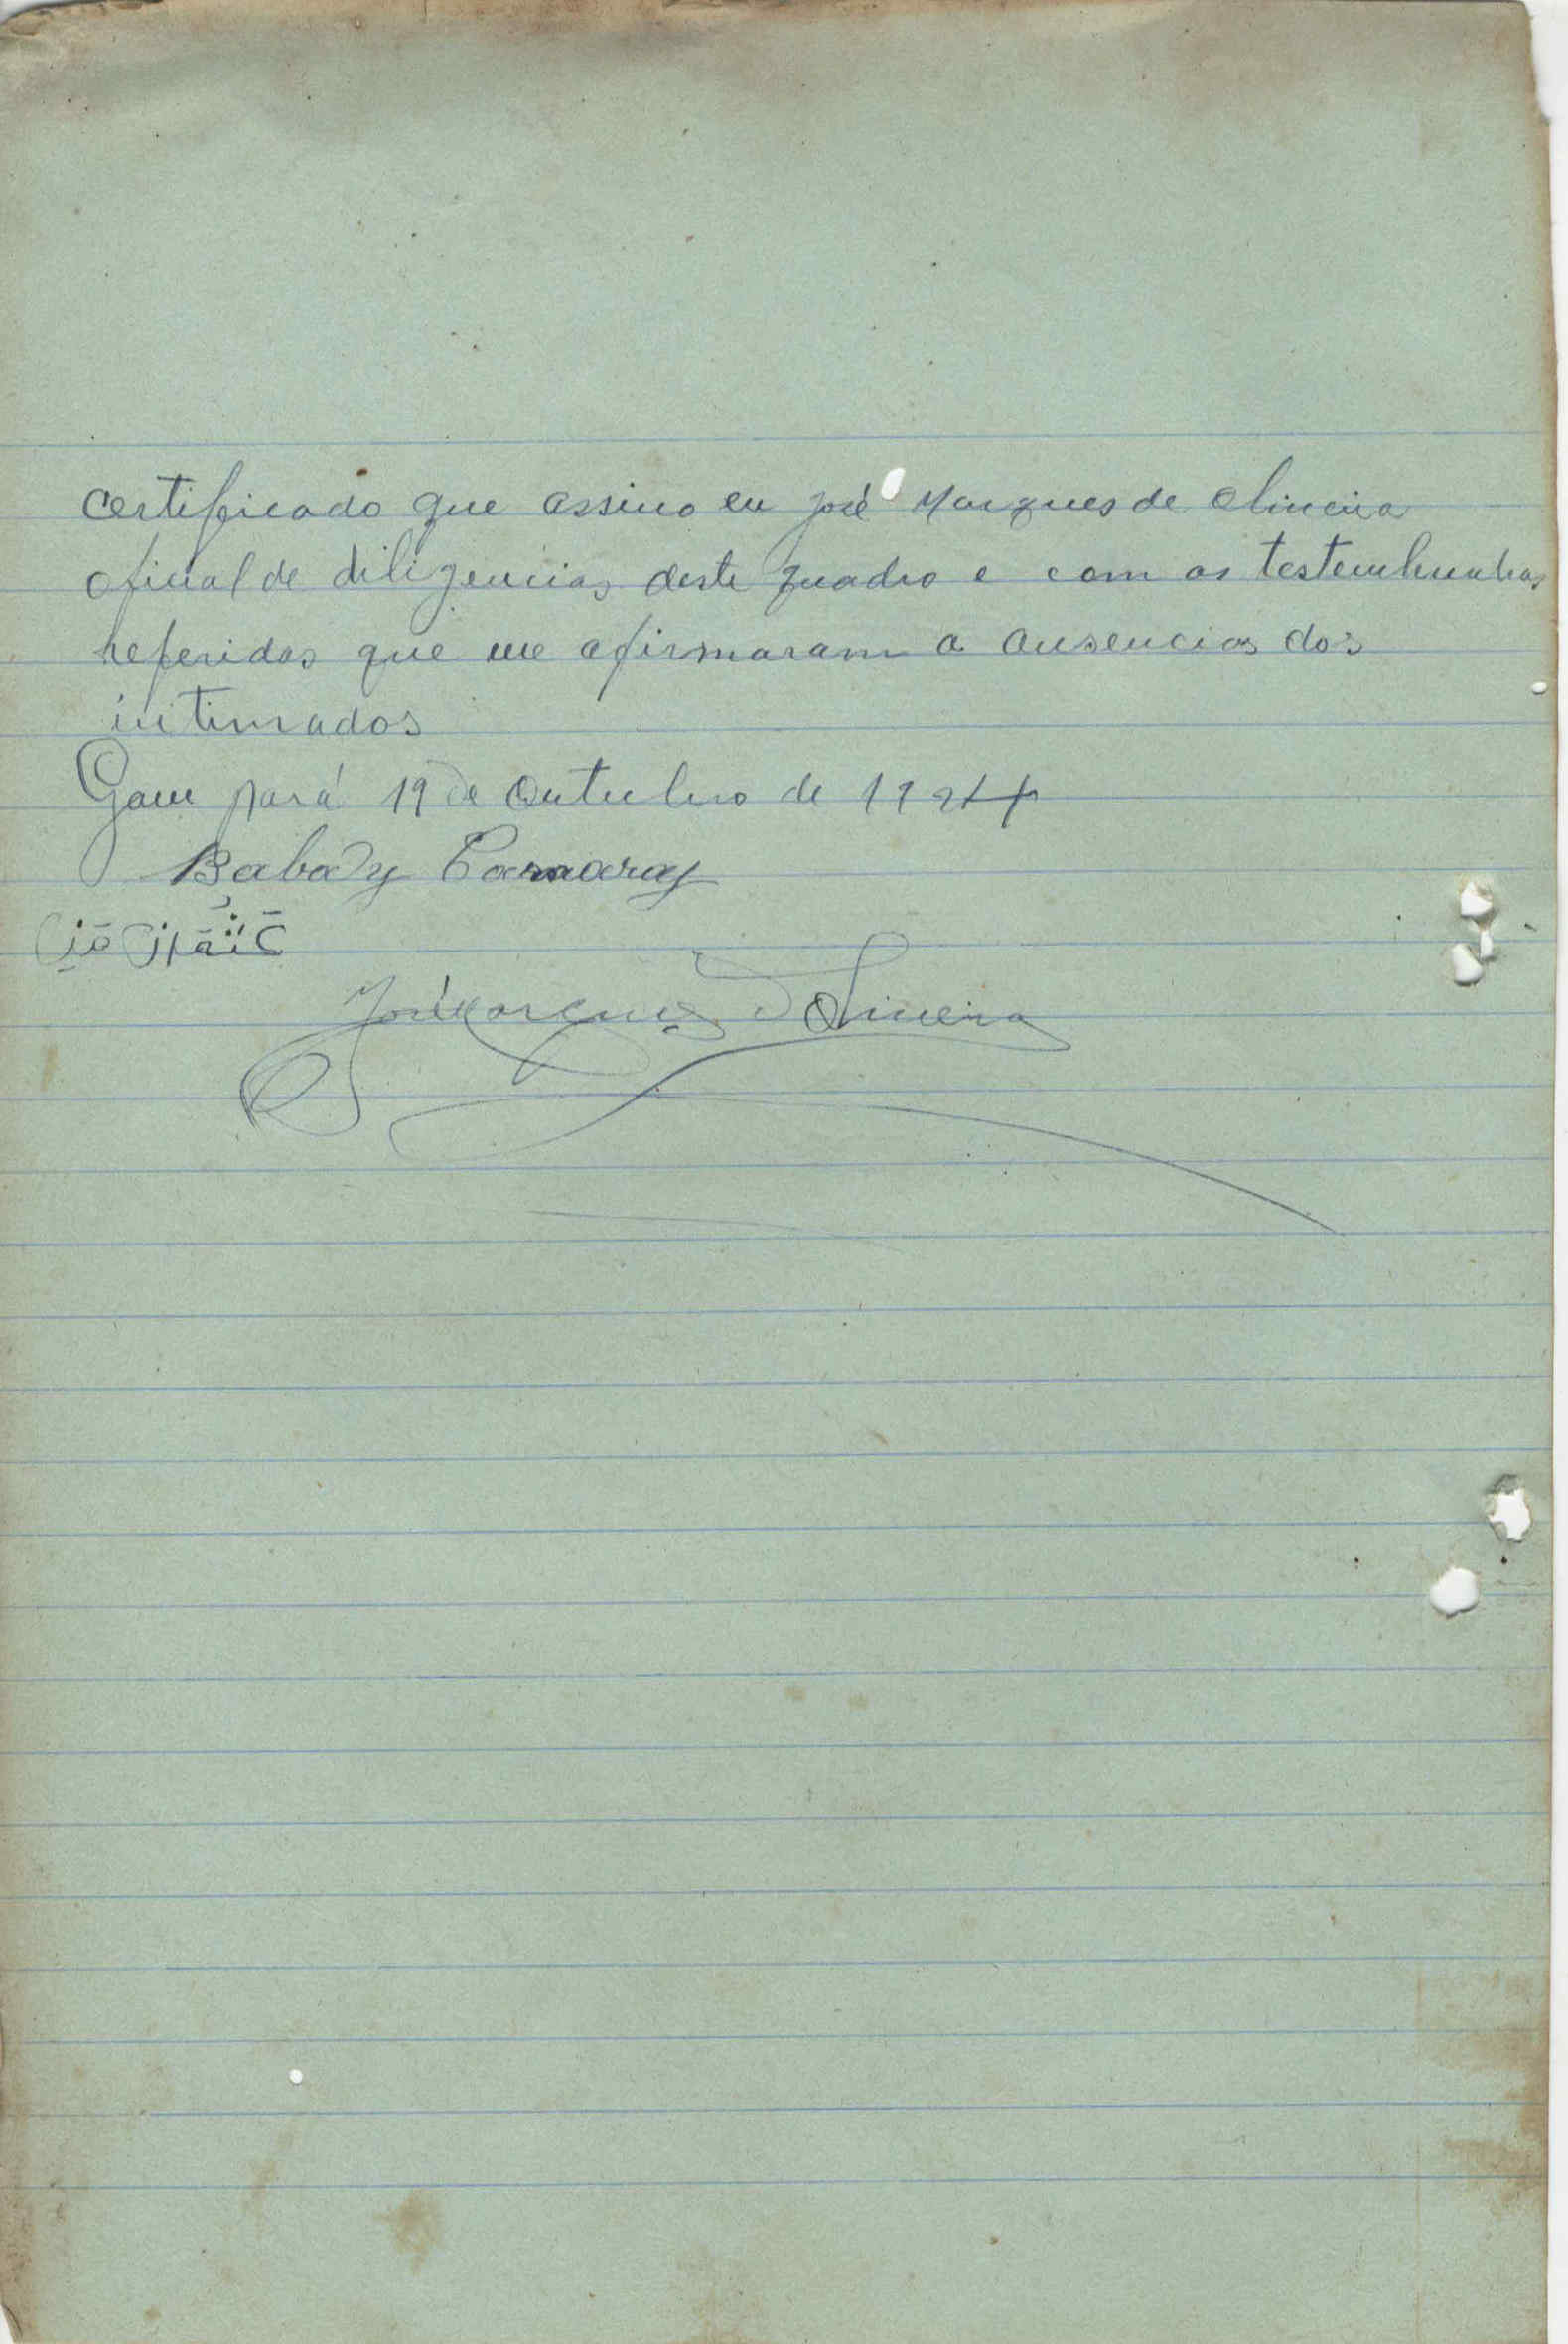 certificado que assino eu José Marques de Oliveira
oficial de diligencias deste quadro e com as testemhunhas
referidas que me afirmaram a ausencias dos
intimados
Gam pará 19 de Outubro de 1944
Babady Camaraz
José Marques d Oliveira